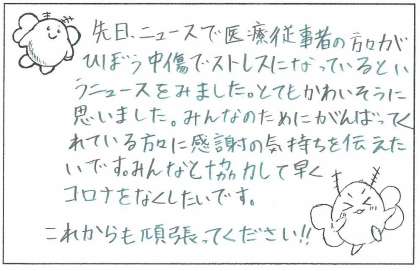 先日、ニュースで医療従事者の方々が
ひぼう中傷でストレスになっているとい
うニュースをみました。とてもかわいそうに
思いました。みんなのためにがんばってく
れている方々に感謝の気持ちを伝えた
いです。みんなと協力して早く
コロナをなくしたいです。
これからも頑張ってください!!